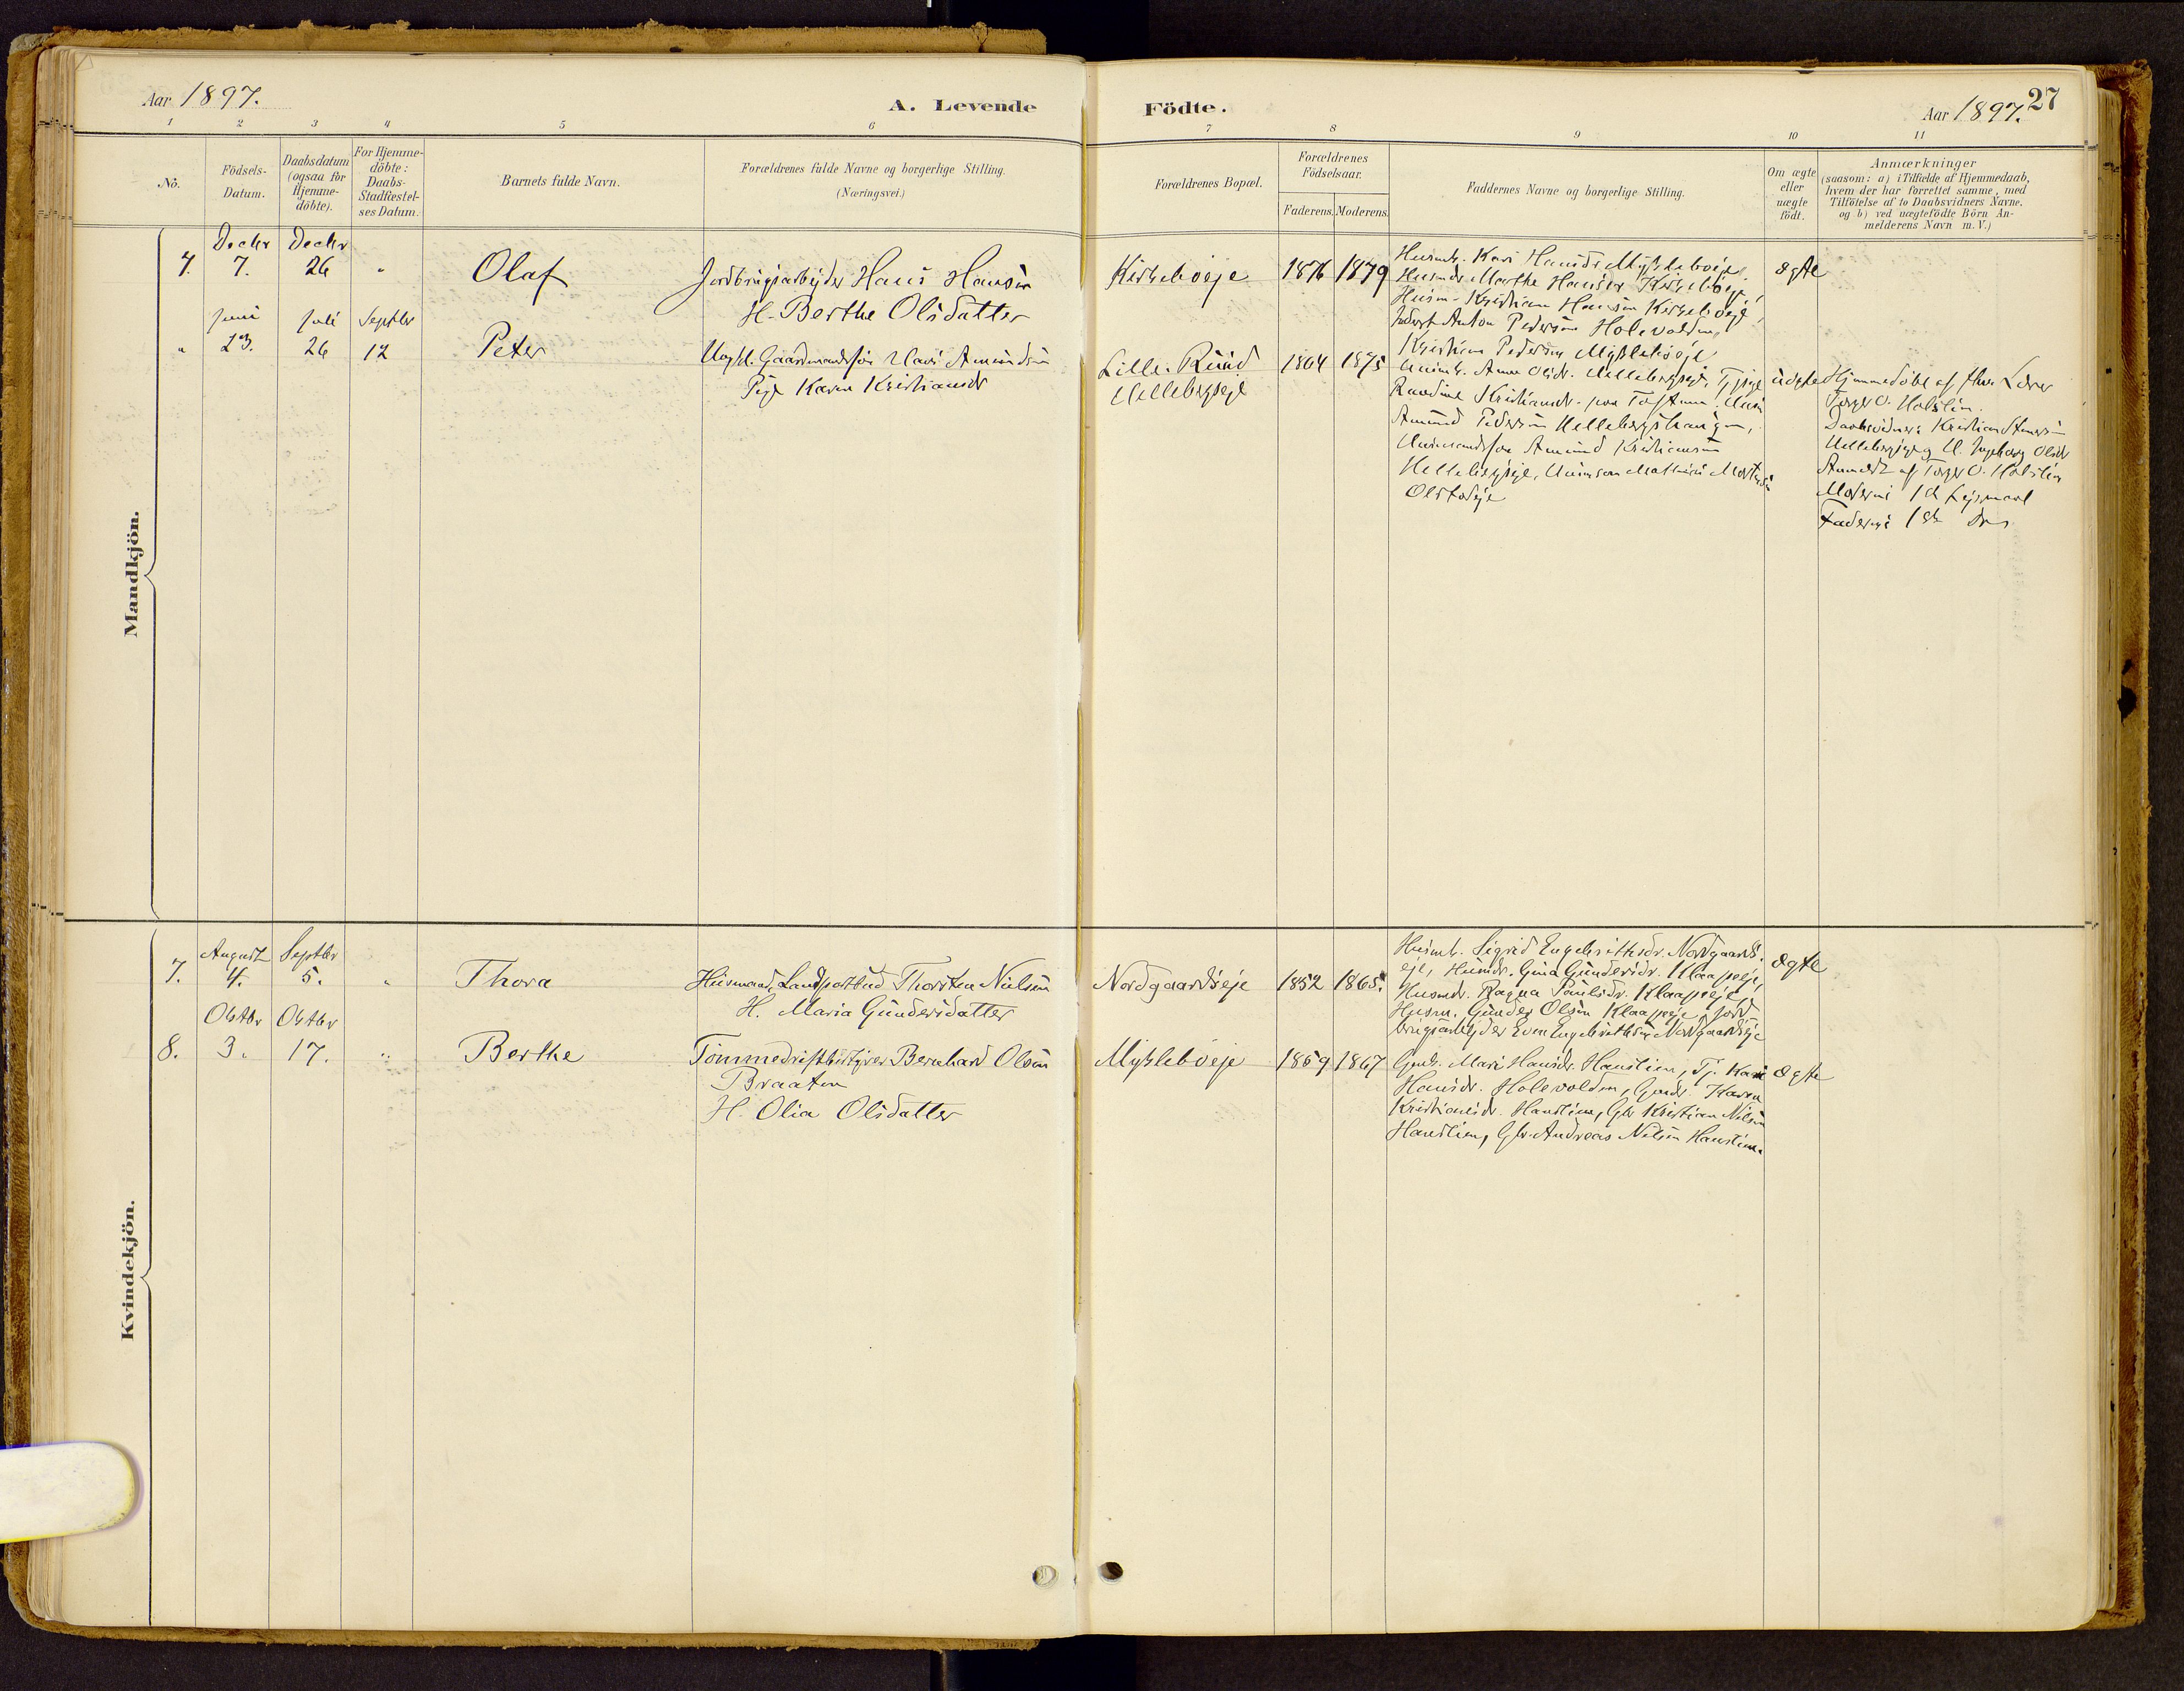 Aar 1897.
A. Levende Födte.
Aar 1897. 27
1 2 3 4 5 6 7 8 9 10 11
No.
Födsels-
Datum.
Daabsdatum
(ogsaa for
Hjemme-
döbte).
For Hjemme-
döbte:
Daabs-
Stadfæstel-
ses Datum.
Barnets fulde Navn.
Forældrenes fulde Navne og borgerlige Stilling.
(Næringsvei.)
Forældrenes Bopæl.
Forældrenes
Födselsaar.
Faderens. Moderens.
Faddernes Navne og borgerlige Stilling.
Om ægte
eller
uægte
födt.
Anmærkninger
(saasom: a) i Tilfælde af Hjemmedaab,
hvem der har forrettet samme, med
Tilföielse af to Daabsvidners Navne.
og b) ved uægtefödte Börn An-
melderens Navn m. V.)
Mandkjön.
Decbr Decbr
7. 7. 26 " Olaf Jordbrugsarbejder Hans Hansen
H. Berthe Olsdatter
Kirkeböeje 1876 1879
Husmk. Kari Hansdr Mysleböeje,
Husmdr. Marthe Hansdr Kirkeböeje,
Husm. Kristian Hansen Kirkeböeje,
Anton Pedersen Holevolden,
Kristian Pedersen Mysleböeje
ægte
Juni Juli Septbr
" 23. 26 12 Peter Ungk. Gaardmandssön Hans Amundsen
Pige Karen Kristiansdr
Lille-Ruud
Hellebergseje
1864 1875
Husmk. Anne Olsdr. Hellebergseje, Tj.pige
Randine Kristiansdr.
Amund Pedersen Hellebergshaugen,
Husmandssön Amund Kristiansen
Hellebergseje, Mathias Martinsen
uægte
Hjemmedöbt af fhv. Lærer
Torger O. Holstin.
Daabsvidner: Kristian Amundsen
Hellebergseje og H. Ingeborg Olsdr
Anmeldt af Torger O. Holstin
Moderens 1st Lejermaal
Faderens 1st Do.
Kvindekjön.
August Septbr
7. 4. 5. " Thora Husmand, Landpostbud Thorsten Nielsen
H. Maria Gundersdatter
Nordgaardseje 1852 1865.
Husmk. Sigrid Engebrethsdr. Nordgaards-
eje, Husmdr. Gina Gundersdr. Klaapeje,
Husmdr. Ragna Paulsdr. Klaapeje,
Husm. Gunder Olsen Klaapeje, Jord-
brugsarbejder Even Engebrethsen Nordgaardseje
ægte
Oktbr Oktbr
8. 3. 17. " Berthe Tömmerdriftbestyrer Bernhard Olsen
Braaten
H. Olia Olsdatter
Mysleböeje 1859 1867
Gmk. Mari Hansdr. Hanslien, Tj. Kari
Hansdr. Holevolden, Gmdr. Karen
Kristiansdr. Hanslien, Gbr Kristian Nilsen
Hanslien, Gbr. Andreas Nilsen Hanslien.
ægte